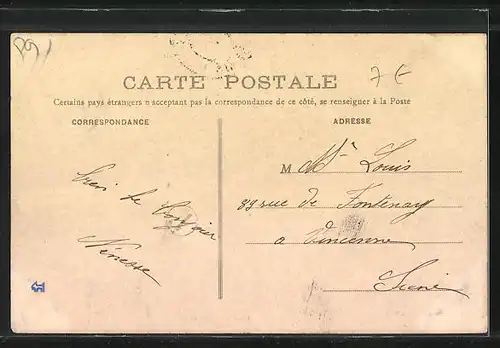 7 €
CARTE POSTALE
Certains pays étrangers n acceptant pas la correspondance de ce côté, se renseigner à la Poste
CORRESPONDANCE
ADRESSE
M Mr Louis
83 rue de Fontenay
a Vincenne
Seine
le
Ninesse